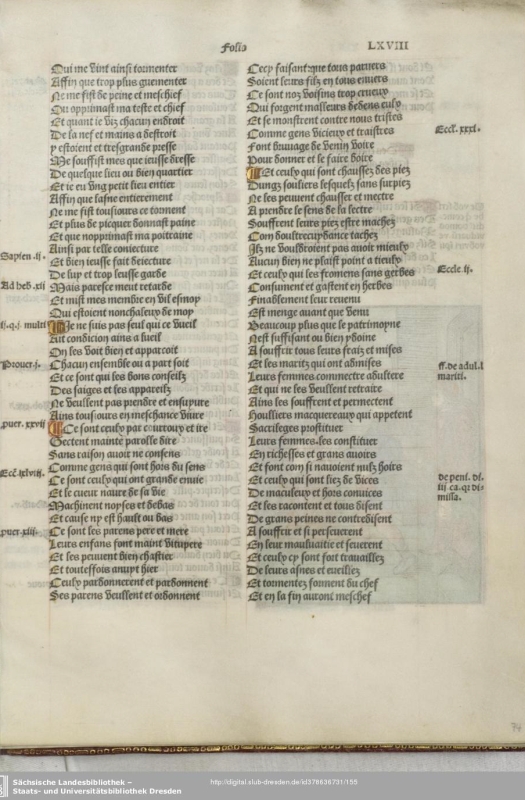 Folio LXVIII
Qui me vint ainsi tormenter
Affin que trop plus guementer
Ne me fist de peine et meschief
Ou opprimast ma teste et chief
Et quant ie viz chacun endroit
De la nef et mains a destroit
y estoient et tresgrande presse
Me souffist mes que ieusse dresse
De quelque lieu ou bien quartier
Et ie eu vng petit lieu entier
Affin que lasne entierement
Ne me fist tousiours ce torment
Et plus de picquer donnast paine
Et que nopprimast ma poitraine
Ainsi par telle coniecture
Sapien .ii.
Et bien ieusse fait deiecture
De luy et trop leusse garde
Ad heb .xii
Mais paresce meut retarde
Et mist mes membre en vil esmoy
Qui estoient nonchaleux de moy
ii.q.i. multi
Je ne suis pas seul qui ce vueil
Aut condicion ains a lueil
On les voit bien et apparcoit
Prouer .i.
Chacun ensemble ou a part soit
Et ce sont qui les bons conseilz
Des saiges et les appareilz
Ne veullent pas prendre et ensuyure
Ains tousiours en meschance viure
puer. xxvii
Ce sont ceulx par courroux et ire
Gectent mainte parolle dire
Sans raison auoir ne consens
Ecc .xlviii.
Comme gens qui sont hors du sens
Ce sont ceulx qui ont grande enuie
Et le cueur naure de sa vie
Machinent noyses et debas
Et cause ny est hault ou bas
puer .xiii.
Ce sont les parens pere et mere
Leurs enfans font maint vitupere
Et les peuuent bien chastier
Et touteffois anuyt hier
Ceulx pardonnerent et pardonnent
Ses parens veullent et ordonnent
Cecy faisant que tous paruers
Soient leurs filz en tous enuers
Ce sont noz voisins trop crueux
Qui forgent malleurs dedens eulx
Et se monstrent contre nous tristes
Comme gens vicieux et traistres
Eccl. xxxi.
Font buuage de venin voire
Pour donner et le faire boire
Et ceulx qui sont chaussez des piez
Dungz souliers lesquelz sans surpiez
Ne les peuuent chausser et mectre
A prendre le sens de la lectre
Souffrent leurs piez estre machez
Con doultrecuydance tachez
Ilz ne vouldroient pas auoir mieulx
Aucun bien ne plaist point a tieulx
Et ceulx qui les fromens sans gerbes
Eccle ii.
Consument et gastent en herbes
Finablement leur reuenu
Est menge auant que venu
Beaucoup plus que le patrimoyne
Nest suffisant ou bien ydoine
A souffrir tous leurs fraiz et mises
Et les maritz qui ont admises
ff. de adul. l
Leurs femmes commectre adultere
mariti.
Et qui ne les veullent retraire
Ains les souffrent et permectent
Houlliers macquereaux qui appetent
Sacrileges prostituer
Leurs femmes les constituer
En richesses et grans auoirs
Et font com si nauoient nulz hoirs
Et ceulx qui sont liez de vices
de peni. di.
De maculeux et hors conuices
iii ca. qi di-
Et les racontent et tous disent
milla.
De grans peines ne contredisent
A souffrir et si perseuerent
En leur mauluaitie et seuerent
Et ceulx cy sont fort trauaillez
De leurs asnes et eueillez
Et tormentez souuent du chef
Et en la fin auront meschef
74
Sächsische Landesbibliothek –
Staats- und Universitätsbibliothek Dresden
http://digital.slub-dresden.de/id378636731/155